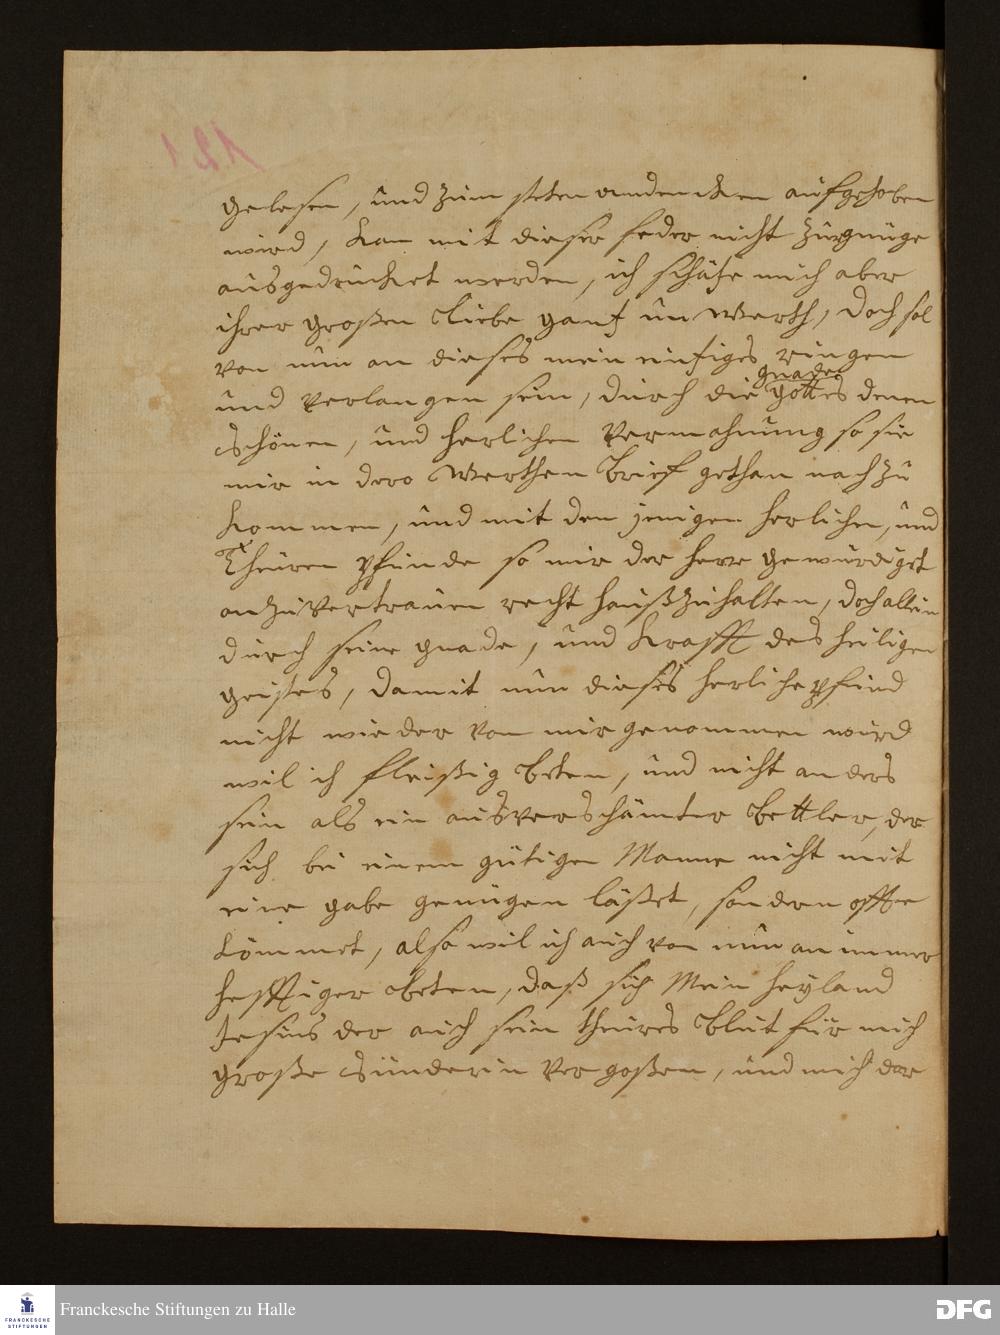 gelesen, und zum steten andencken aufgehoben
wird, kan mit dieser feder nicht zurgnüge
ausgedrücket werden, ich schätze mich aber
ihrer großen Liebe gantz un werth, doch sol
von nun an dieses mein eintziges ringen
gnade
und verlangen sein, durch die gottes denen
schönen, und herlichen Vermahnung so sie
mir in dero Werthen Brief gethan nach zu
kommen, und mit den jenigen herlichen, und
Theuren pfunde so mir der herr gewürdiget
anzuvertrauen recht haußzuhalten, doch allein
durch seine gnade, und Krafft des heiligen
geistes, damit nun dieses herliche pfund
nicht wieder von mir genommen wird
wil ich fleißig beten, und nicht anders
sein als ein ausverschämter Bettler, der
sich bei einem gütigen Manne nicht mit
eine gabe genügen läßet, sondern offte
kömmet, also wil ich auch von nun an immer
hefftiger beten, daß sich Mein heyland
Jesus der auch sein theures Blut für mich
große sünderin vergoßen, und mich dar
121
Franckesche Stiftungen zu Halle
FRANCKESCHE
STIFTUNGEN
DFG